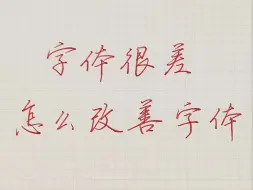 字体很差
怎么改善字体